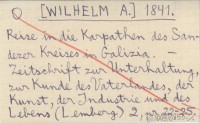 [WILHELM A.] 1841.
Reise in die Karpathen des San-
dezer Kreises in Galizia. –
Zeitschrift zur Unterhaltung,
zur Kunde des Vaterlandes, der
Kunst, der Industrie und des
Lebens (Lemberg) 2, nr 22-25.